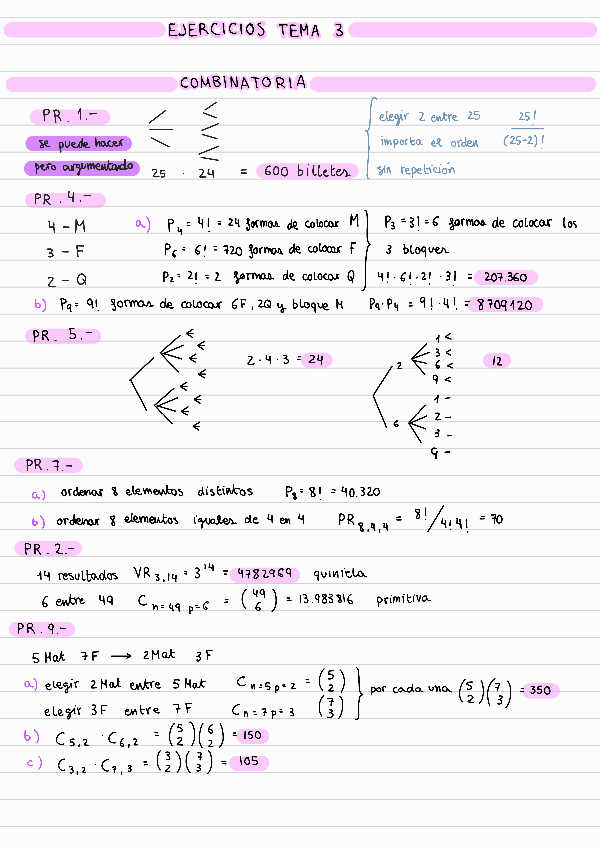 EJERCICIOS TEMA 3
COMBINATORIA
PR. 1.-
se puede hacer
pero argumentado
25 · 24 = 600 billetes
elegir 2 entre 25 25!
importa el orden (25-2)!
sin repetición
PR. 4.-
4 - M a) P4 = 4! = 24 formas de colocar M P3 = 3! = 6 formas de colocar los
3 - F P6 = 6! = 720 formas de colocar F 3 bloques
2 - Q P2 = 2! = 2 formas de colocar Q 4! · 6! · 2! · 3! = 207.360
b) P9 = 9! formas de colocar 6F, 2Q y bloque M P9·P4 = 9! · 4! = 8709120
PR. 5.-
2 · 4 · 3 = 24
2
1 <
3 <
6 <
9 <
6
1 -
2 -
3 -
9 -
12
PR. 7.-
a) ordenar 8 elementos distintos P8 = 8! = 40.320
b) ordenar 8 elementos iguales de 4 en 4 PR 8,4,4 = 8! / 4!4! = 70
PR. 2.-
14 resultados VR 3,14 = 3^14 = 4782969 quiniela
6 entre 49 C n=49 p=6 = (49 6) = 13.983816 primitiva
PR. 9.-
5 Mat 7F → 2 Mat 3F
a) elegir 2 Mat entre 5 Mat C n=5 p=2 = (5 2) por cada una (5 2)(7 3) = 350
elegir 3F entre 7F C n=7 p=3 (7 3)
b) C 5,2 · C 6,2 = (5 2)(6 2) = 150
c) C 3,2 · C 7,3 = (3 2)(7 3) = 105